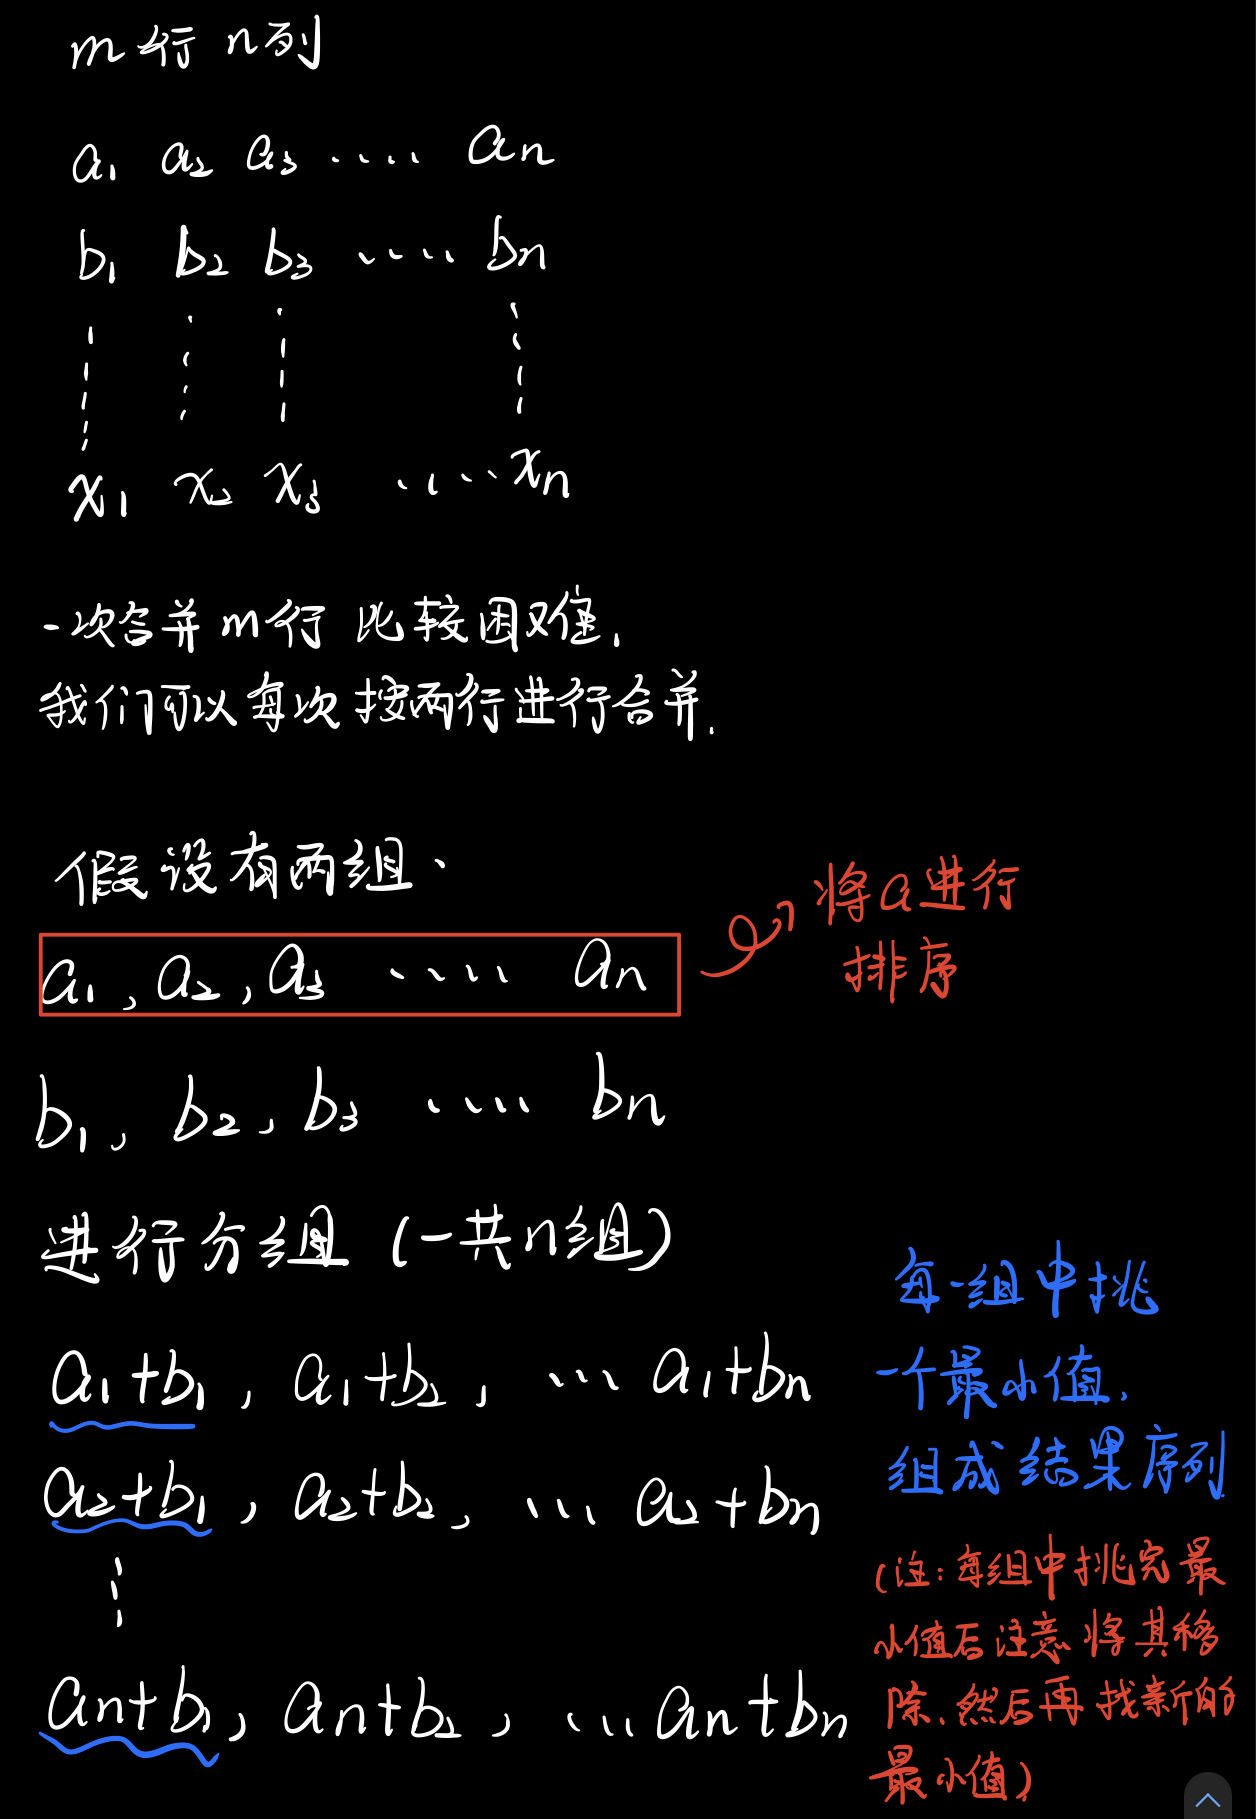 m行 n列
a₁ a₂ a₃ ····· aₙ
b₁ b₂ b₃ ····· bₙ
x₁ x₂ x₃ ····· xₙ
一次合并m行 比较困难.
我们可以每次按两行进行合并.
假设有两组、
a₁, a₂, a₃ ····· aₙ
将a进行
排序
b₁, b₂, b₃ ····· bₙ
进行分组 (一共n组)
a₁+b₁, a₁+b₂, ··· a₁+bₙ
a₂+b₁, a₂+b₂, ··· a₂+bₙ
aₙ+b₁, aₙ+b₂, ··· aₙ+bₙ
每一组中挑
一个最小值.
组成结果序列
(注:每组中挑完最
小值后注意将其移
除,然后再找新的
最小值)